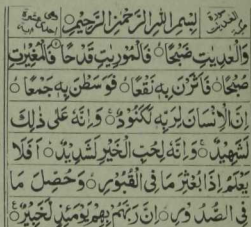 سورة العديت بِسْمِ اللهِ الرَّحْمٰنِ الرَّحِيْمِ
وَالْعٰدِيٰتِ ضَبْحًا ۙ فَالْمُوْرِيٰتِ قَدْحًا ۙ فَالْمُغِيْرٰتِ
صُبْحًا ۙ فَاَثَرْنَ بِهٖ نَقْعًا ۙ فَوَسَطْنَ بِهٖ جَمْعًا ۙ
اِنَّ الْاِنْسَانَ لِرَبِّهٖ لَكَنُوْدٌ ۚ وَاِنَّهٗ عَلٰى ذٰلِكَ
لَشَهِيْدٌ ۚ وَاِنَّهٗ لِحُبِّ الْخَيْرِ لَشَدِيْدٌ ؕ اَفَلَا
يَعْلَمُ اِذَا بُعْثِرَ مَا فِى الْقُبُوْرِ ۙ وَحُصِّلَ مَا
فِى الصُّدُوْرِ ۙ اِنَّ رَبَّهُمْ بِهِمْ يَوْمَئِذٍ لَّخَبِيْرٌ